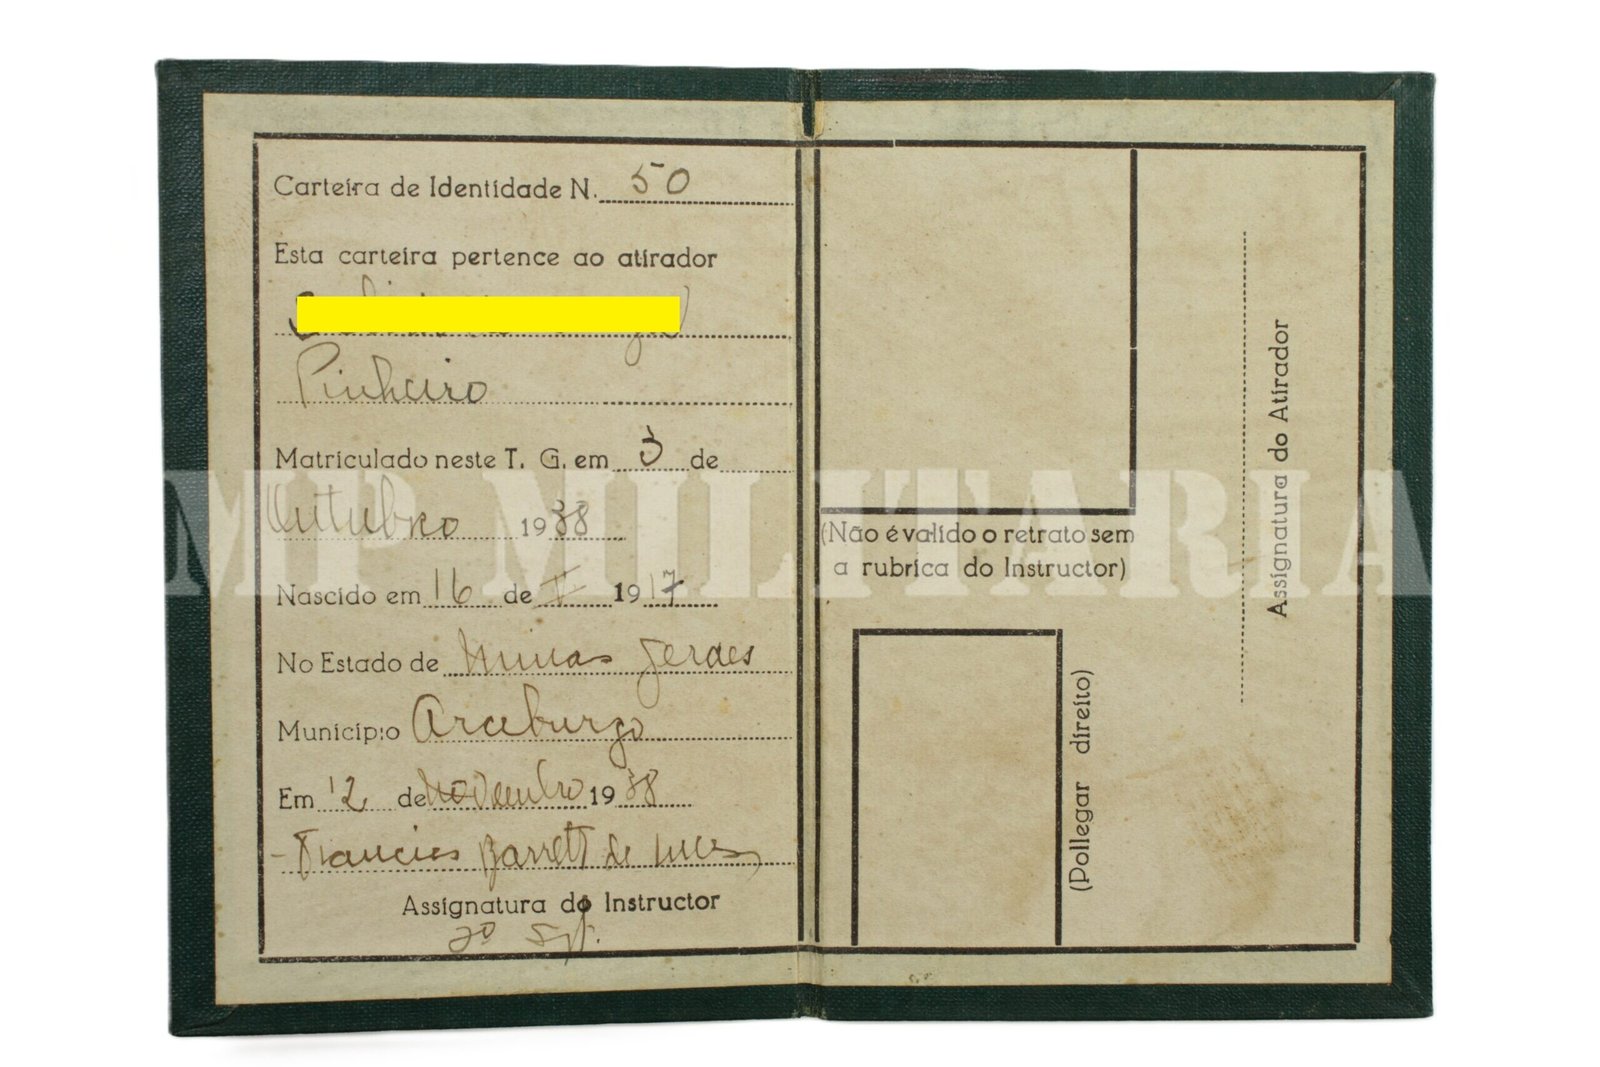 Carteira de Identidade N. 50
Esta carteira pertence ao atirador
Pinheiro
Matriculado neste T. G. em 3 de
Outubro 1938
Nascido em 16 de V 1917
No Estado de Minas Geraes
Município Arceburgo
Em 12 de Novembro 1938
Francisco Barreto de
Assignatura do Instructor
2º Sgt.
(Não é valido o retrato sem
a rubrica do Instructor)
(Pollegar direito)
Assignatura do Atirador
MP MILITARIA